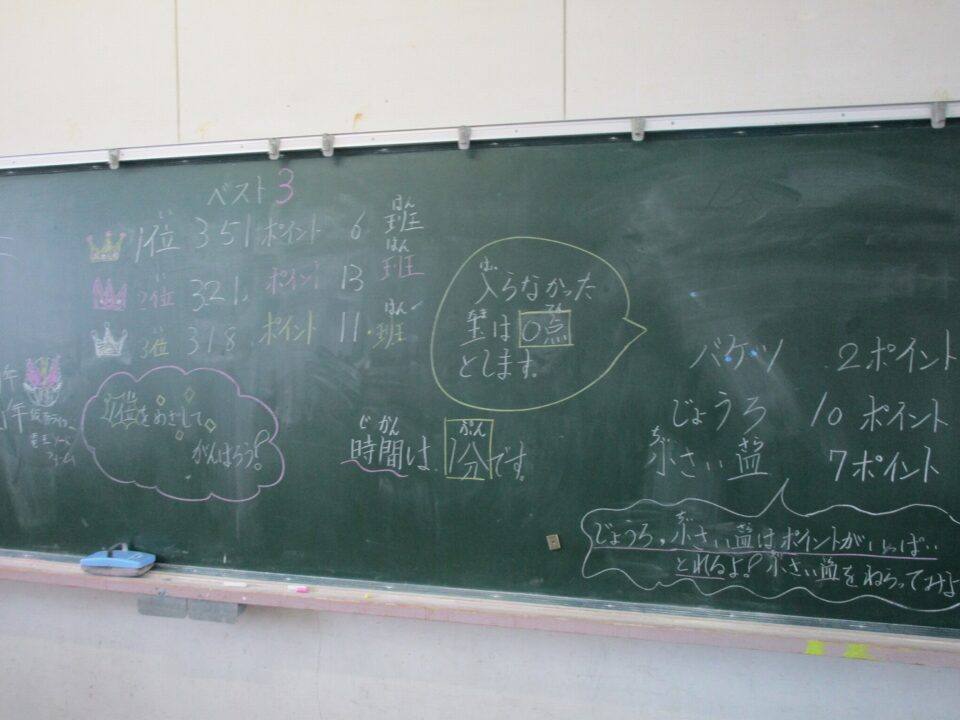 ベスト3
1位 351 ポイント 6 班
はん
2位 321 ポイント 13 班
はん
3位 318 ポイント 11 班
はん
1位をめざして
がんばろう!
入らなかった
玉は0点
とします。
じかん ぷん
時間は、1分です。
バケツ 2ポイント
じょうろ 10ポイント
ちい さら
小さい皿 7ポイント
じょうろ、小さい皿はポイントがいっぱい
とれるよ!小さい皿をねらってみよ